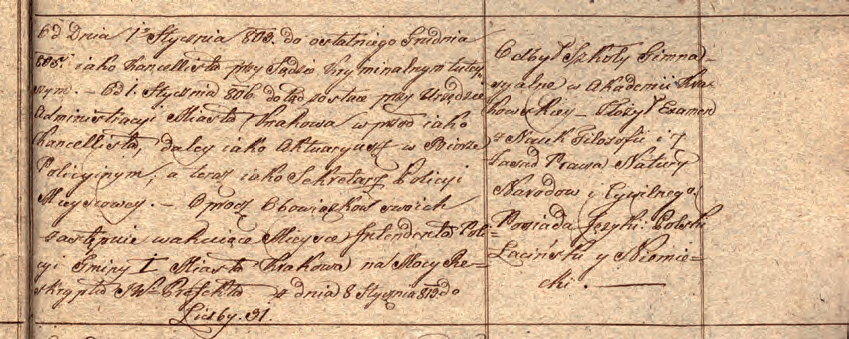 Od Dnia 1º Stycznia 803. do ostatniego Grudnia
805. iako Kancellista przy Sądzie Kryminalnym tutey-
szym. – Od 1. Stycznia 806. dotąd zostaie przy Urzędzie
Administracyi Miasta Krakowa w przod iako
Kancellista, daley iako Aktuaryusz w Biórze
Policyinym; a teraz iako Sekretarz Policyi
Mieyscowey. – Oprocz Obowiązków swoich
zastępuie wakuiące Mieysce Intendenta Pol-
icyi Gminy I Miasta Krakowa na Mocy Re-
skryptu JW Prefekta z dnia 8 Stycznia 813 do
Liczby. 31.
Odbył Szkoły Gimna-
zyalne w Akademii Kra-
kowskiey – Złożył Examen
z Nauk Filozofii i z
Zasad Prawa Natury
Narodow i Cywilnego,
Posiada Języki: Polski
Łaciński y Niemie-
cki. –